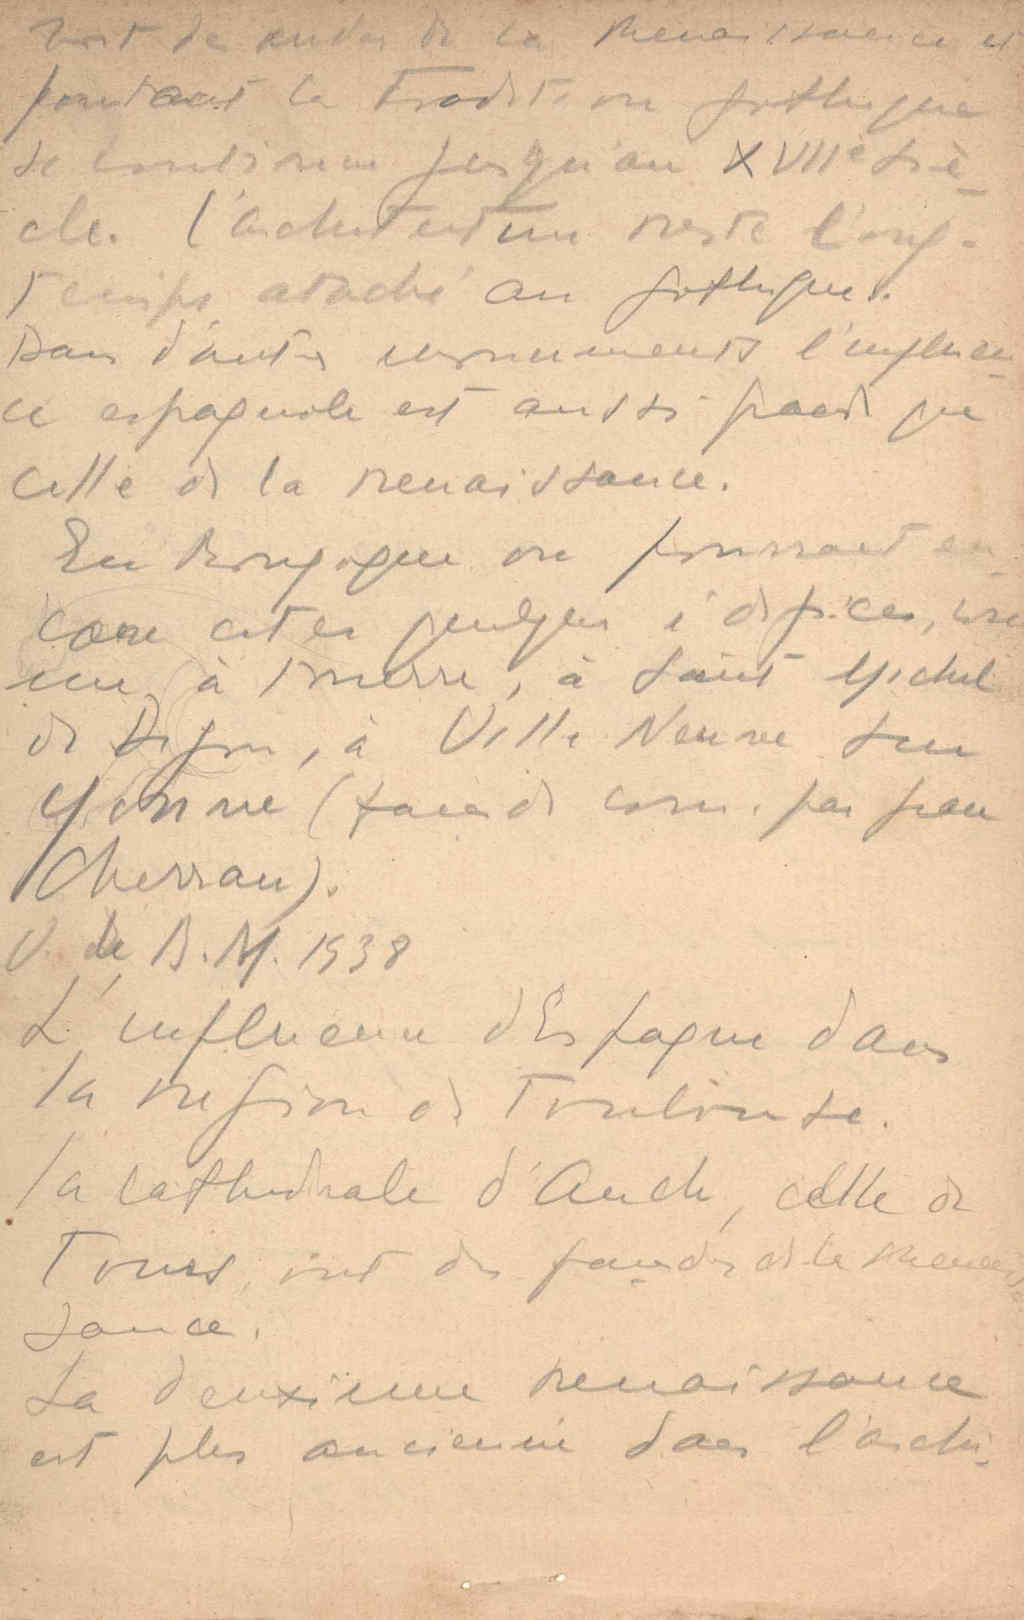 de la Renaissance et
pourtant la tradition gothique
se continue jusqu'au XVIIe siè-
cle. L'architecture reste long-
temps ataché au gothique.
Dans d'autres monuments l'influen-
ce espagnole est aussi grande que
celle de la renaissance.
En Bourgogne on pourrait en-
core citer quelques édifices,
à Tonerre, à Saint Michel
de Dijon, à Ville Neuve sur
Yonne (façade com. par Jean
Cherrau).
V. de B. M. 1938
L'influence d'Espagne dans
la region de Toulouse.
la cathedrale d'Auch, celle de
Tours, ont des façades de la Renais
sance.
La deuxieme renaissance
est plus ancienne dans l'archi-